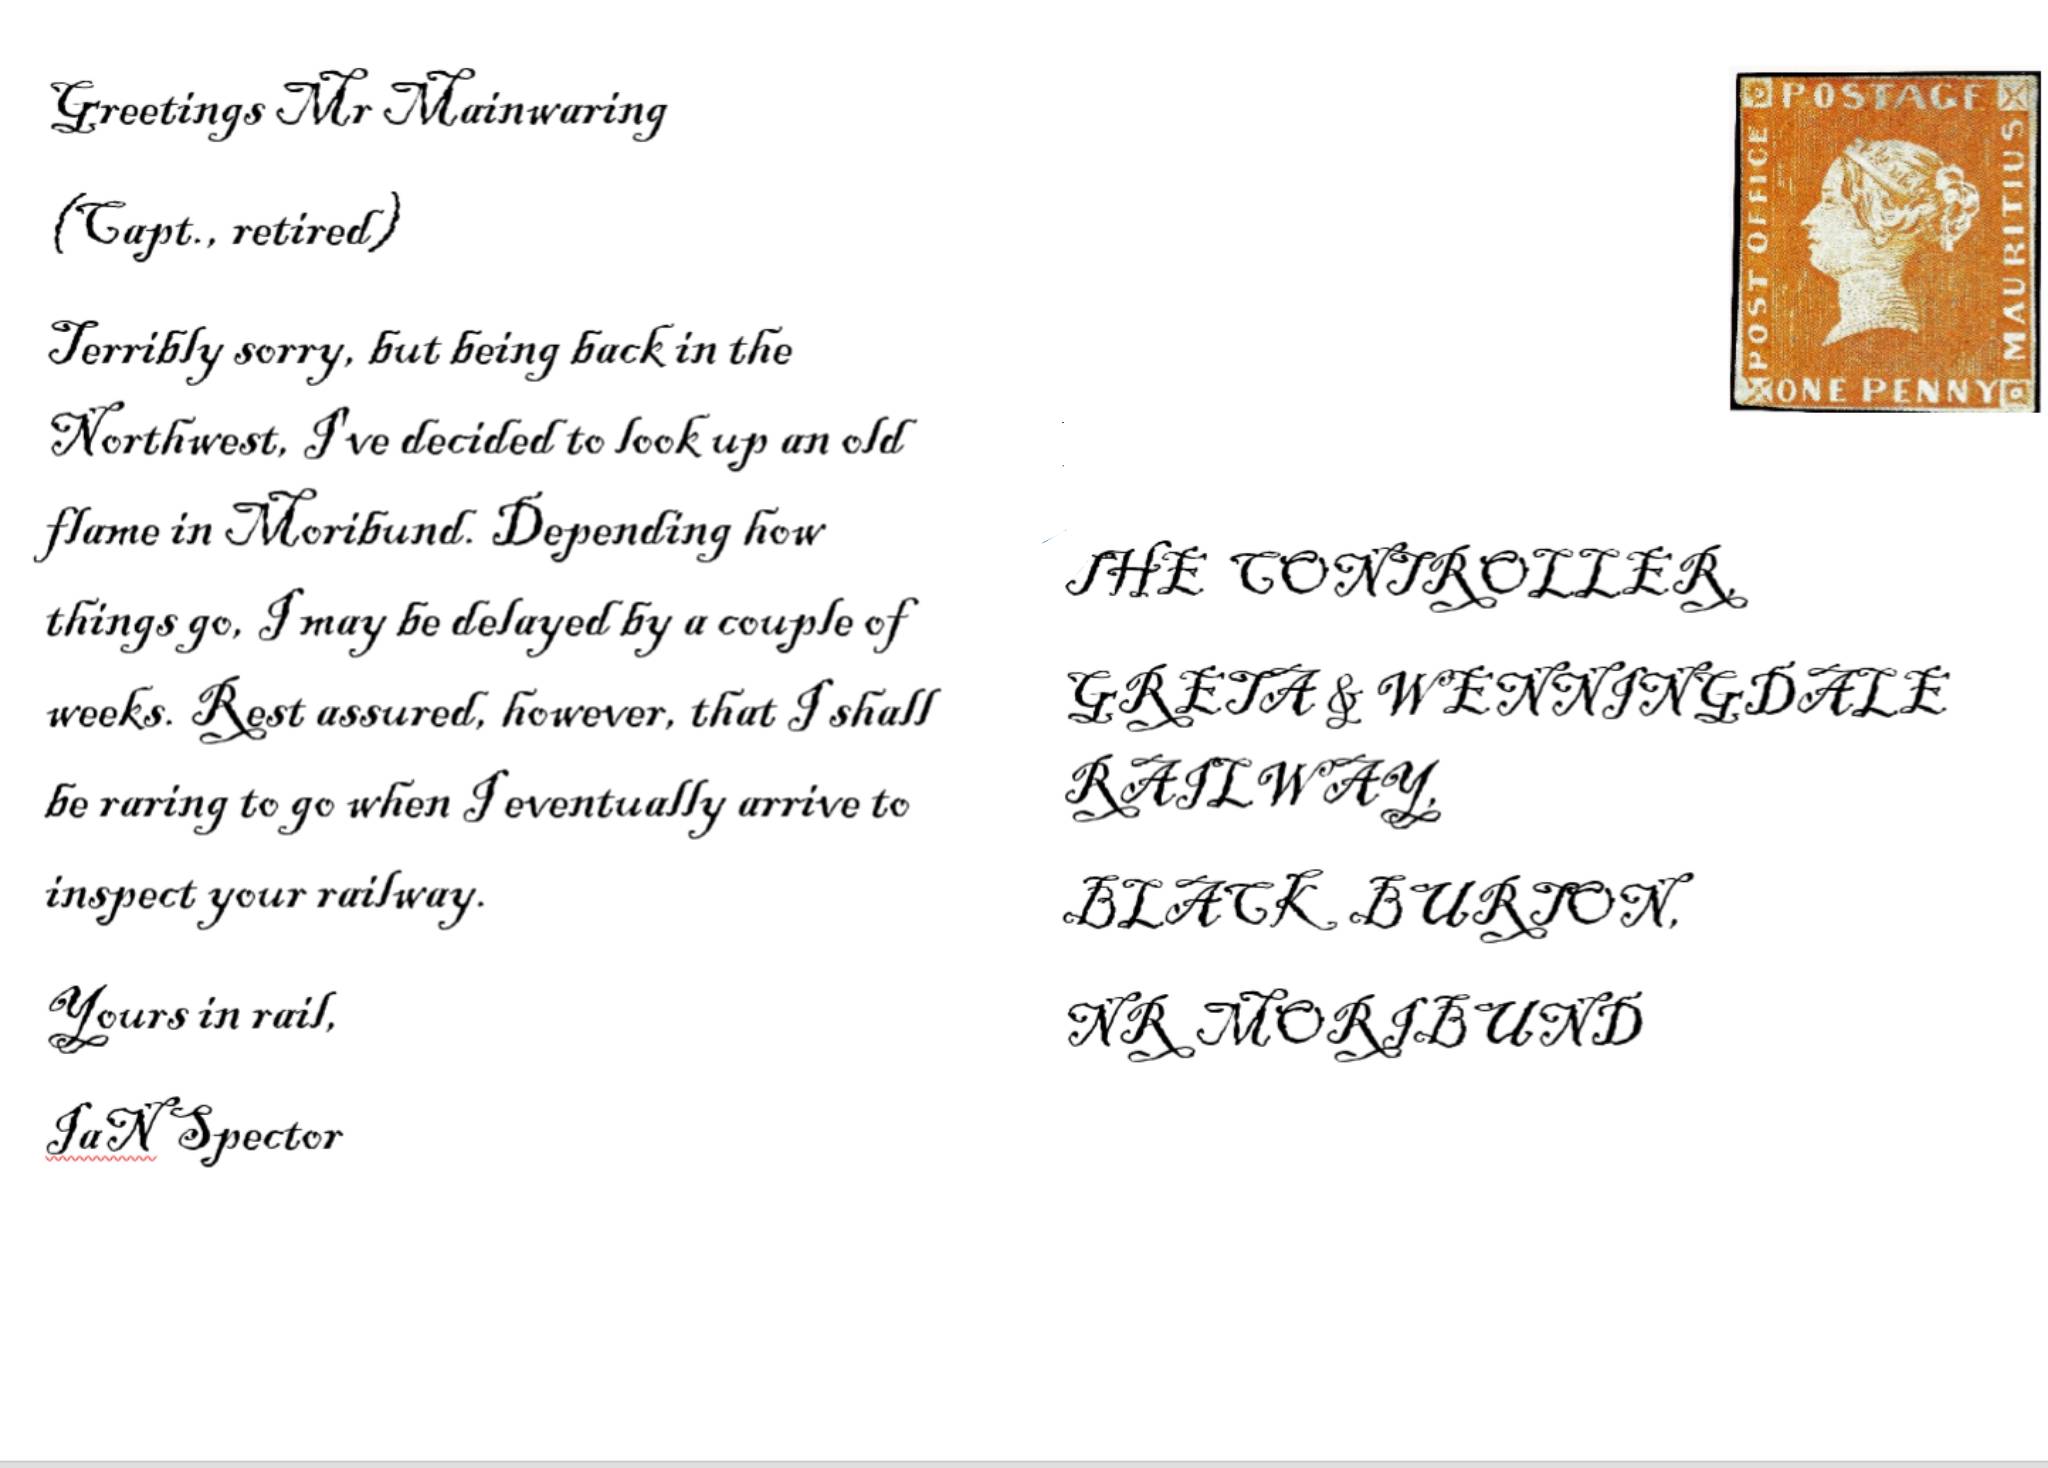 Greetings Mr Mainwaring
(Capt., retired)
Terribly sorry, but being back in the
Northwest, I've decided to look up an old
flame in Moribund. Depending how
things go, I may be delayed by a couple of
weeks. Rest assured, however, that I shall
be raring to go when I eventually arrive to
inspect your railway.
Yours in rail,
IaN Spector
POSTAGE
POST OFFICE
MAURITIUS
ONE PENNY
THE CONTROLLER,
GRETA & WENNINGDALE
RAILWAY,
BLACK BURTON,
NR MORIBUND